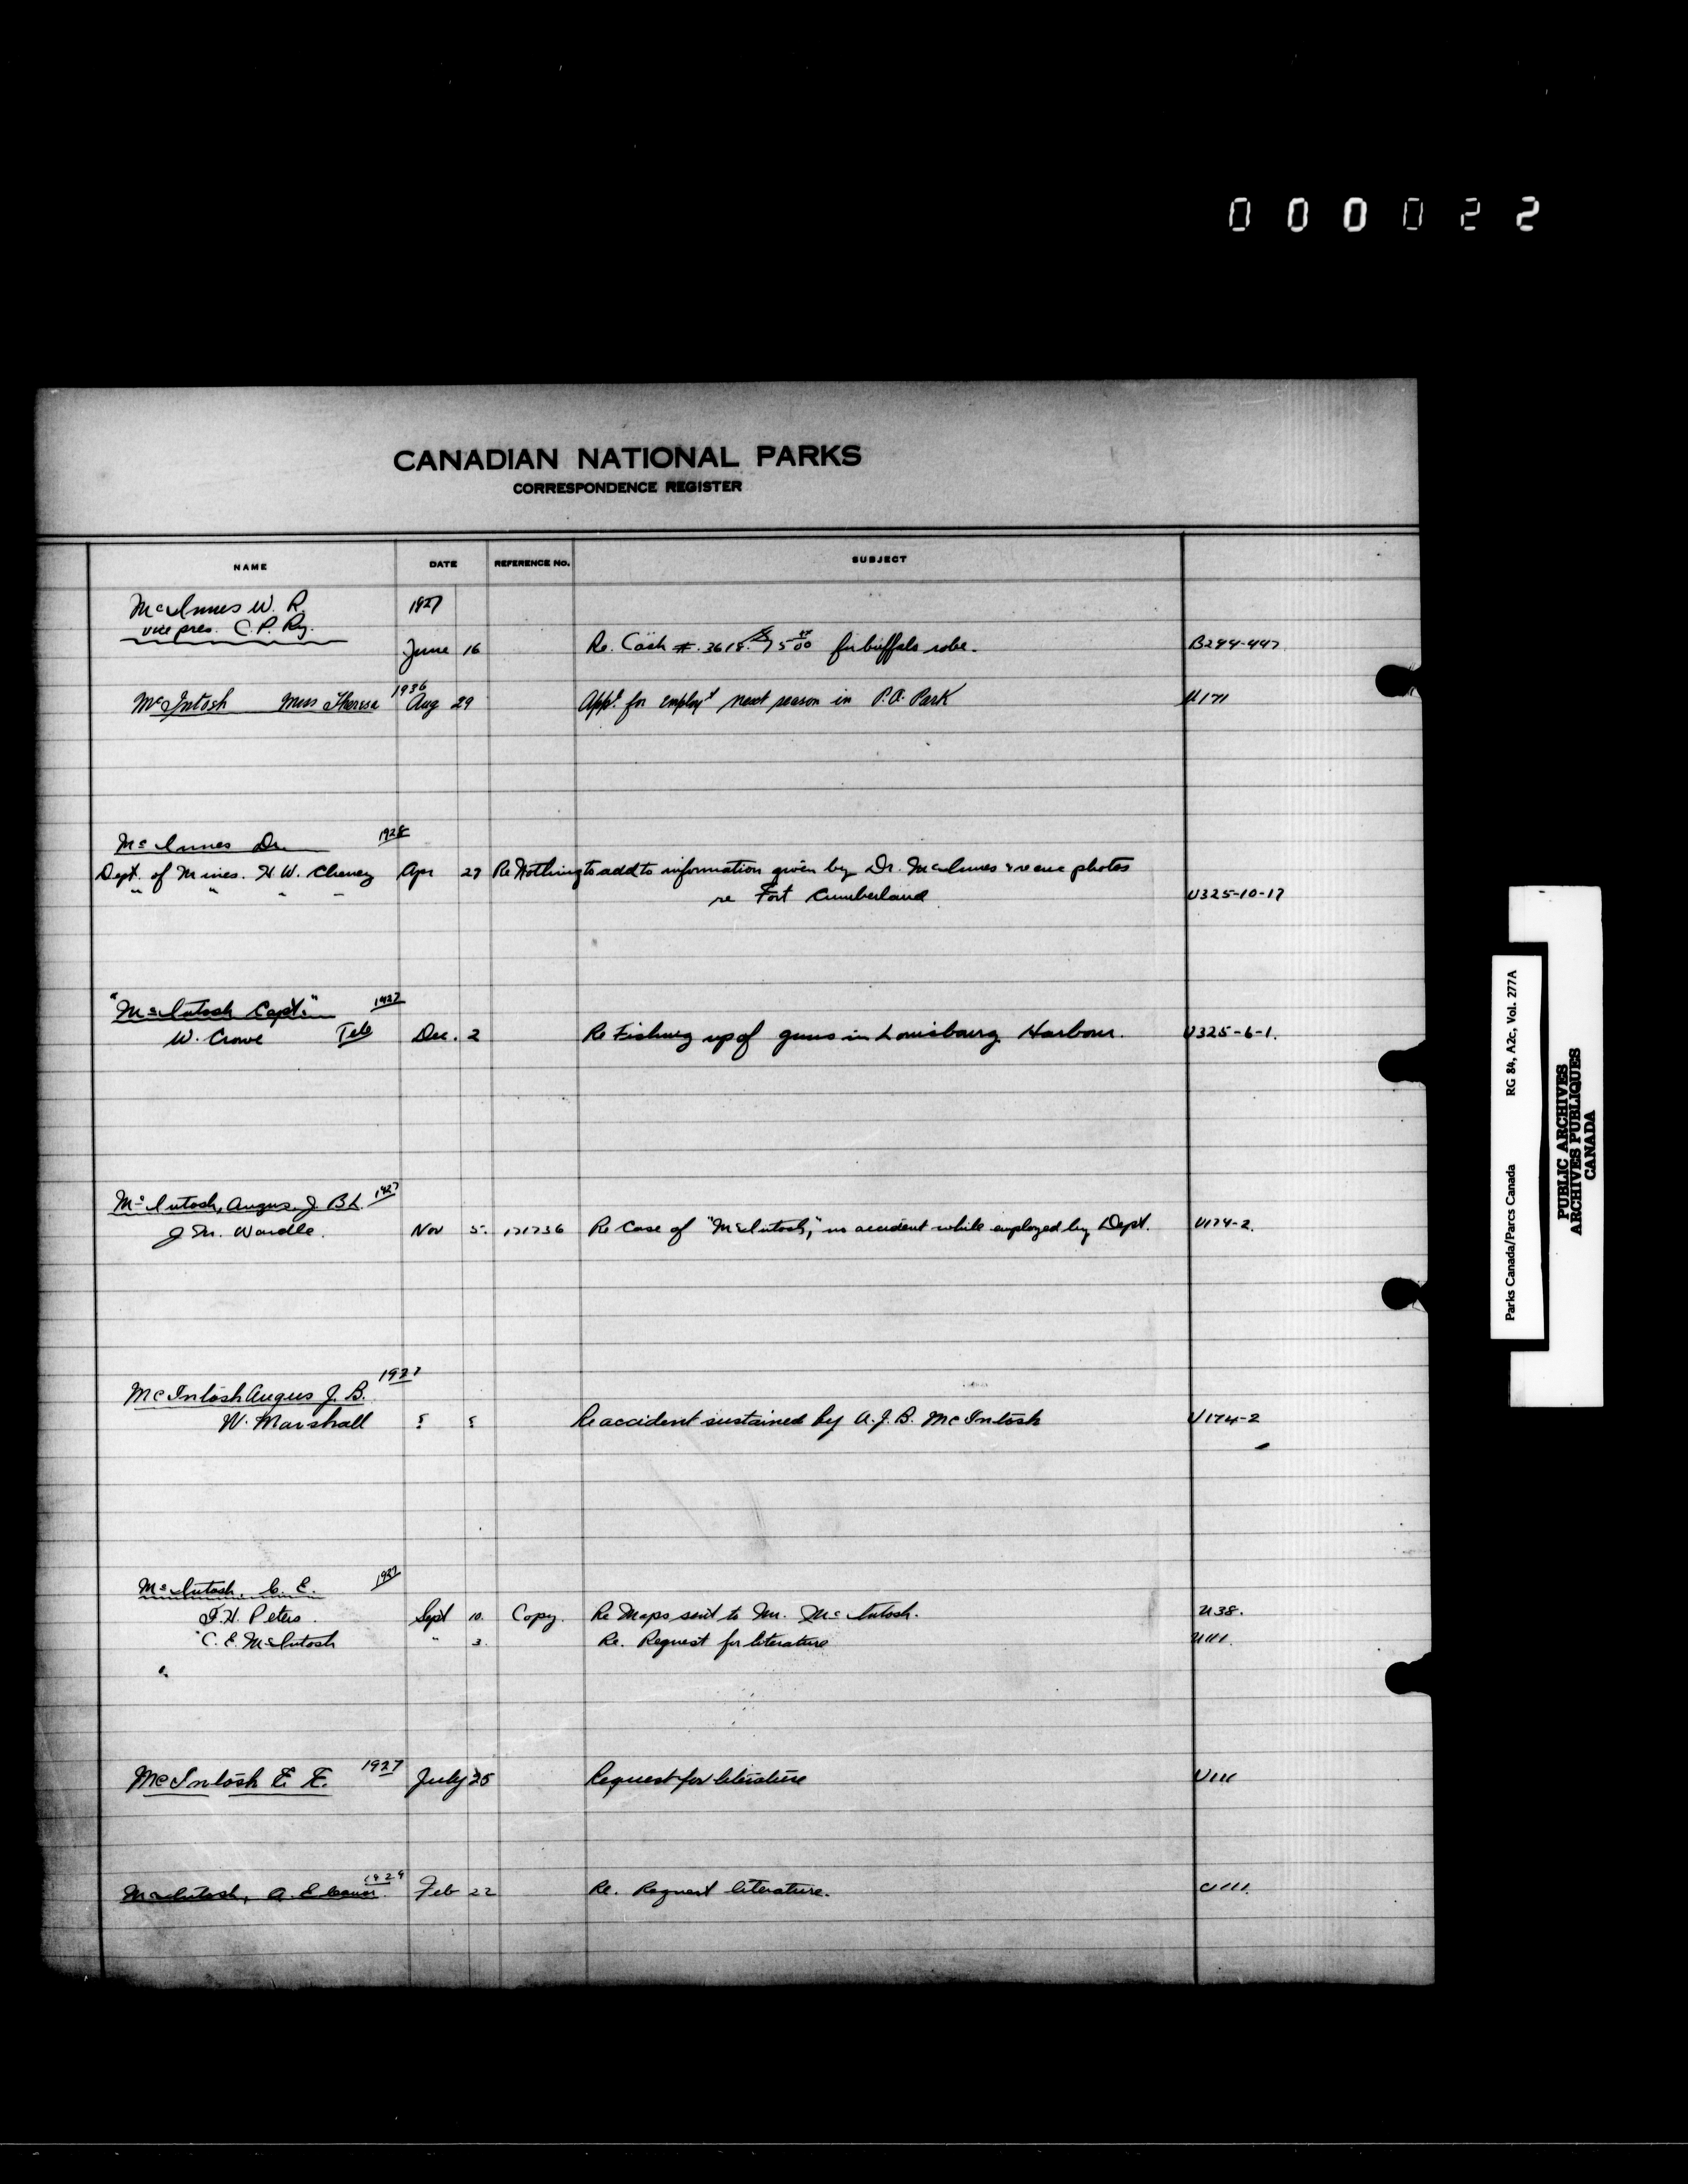 000022
CANADIAN NATIONAL PARKS
CORRESPONDENCE REGISTER
NAME DATE REFERENCE NO. SUBJECT
McInnes W. R. 1927
vice pres. C. P. Ry.
June 16 Re. Cash #. 3618. 75 00 for buffalo robe. B244-447
McIntosh Miss Theresa 1936 Aug 29 Appl. for employt next season in P.A. Park U171
McInnes Dr. 1928
Dept. of Mines. H. W. Cheney Apr 27 Re Nothing to add to information given by Dr. McInnes photos
" " " " re Fort Cumberland U325-10-17
"McIntosh Capt." 1927
W. Crowe Tele Dec. 2 Re Fishing up of guns in Louisbourg Harbour. U325-6-1.
McIntosh, Angus. J. B. 1927
J. M. Wardle. Nov 5. 171736 Re Case of "McIntosh," accident while employed by Dept. U174-2.
McIntosh Angus J. B. 1927
W. Marshall ? ? Re accident sustained by A. J. B. McIntosh U174-2
McIntosh, C. E. 1927
F. H. Peters. Sept 10. Copy. Re Maps sent to Mr. McIntosh. U38.
C. E. McIntosh " 3. Re. Request for literature U111.
McIntosh E. E. 1927 July 25 Request for literature U111
McIntosh, A. Eleanor. 1929 Feb 22 Re. Request literature. U111.
Parks Canada/Parcs Canada RG 84, A2c, Vol. 277A
PUBLIC ARCHIVES
ARCHIVES PUBLIQUES
CANADA